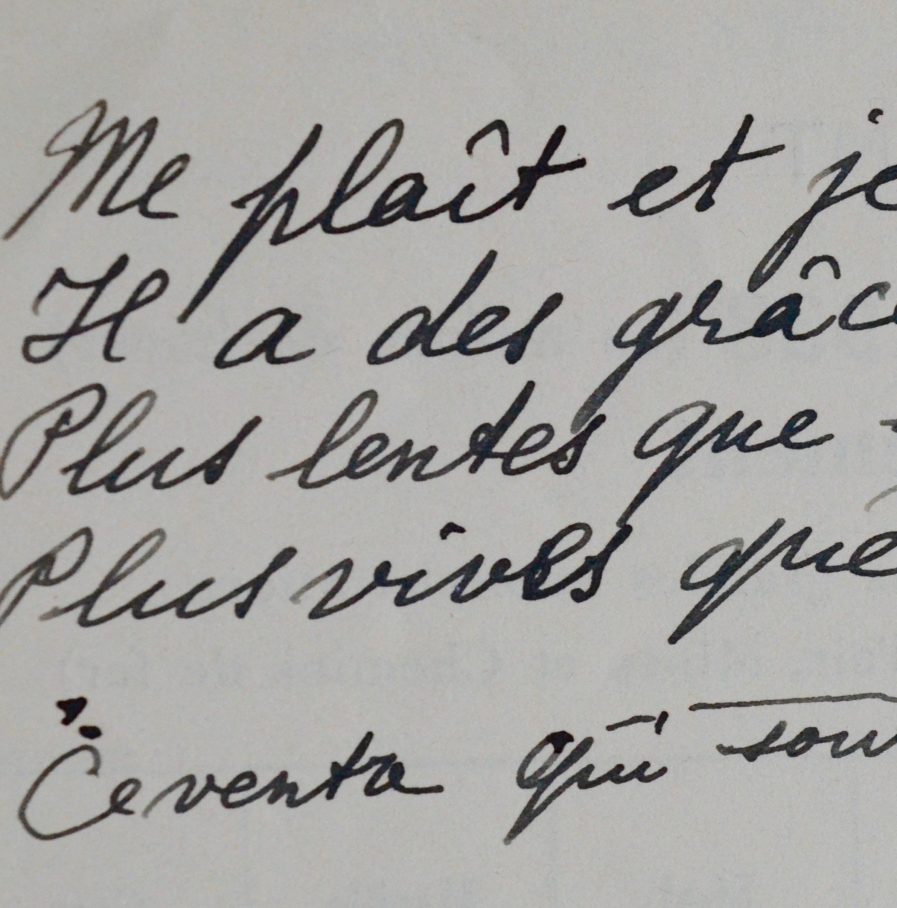 Me plaît et je
Il a des grâce
Plus lentes que
Plus vives que
Ce venta qui sou